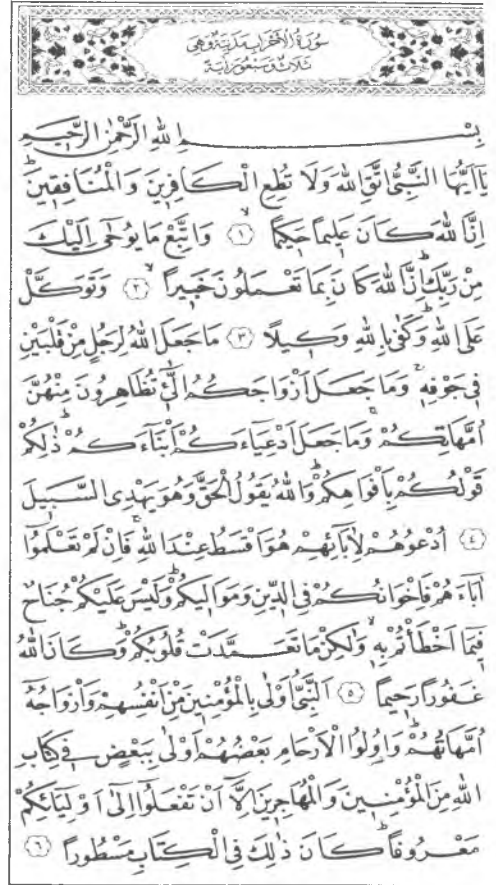 سُورَةُ الْاَحْزَابِ مَدَنِيَّةٌ وَهِىَ
ثَلَاثٌ وَسَبْعُونَ اٰيَةً
بِسْمِ اللهِ الرَّحْمٰنِ الرَّحِيمِ
يَآ اَيُّهَا النَّبِىُّ اتَّقِ اللهَ وَلَا تُطِعِ الْكَافِرِينَ وَالْمُنَافِقِينَۜ
اِنَّ اللهَ كَانَ عَلِيماً حَكِيماًۙ ﴿١﴾ وَاتَّبِعْ مَا يُوحٰٓى اِلَيْكَ
مِنْ رَبِّكَۜ اِنَّ اللهَ كَانَ بِمَا تَعْمَلُونَ خَبِيراًۙ ﴿٢﴾ وَتَوَكَّلْ
عَلَى اللهِۜ وَكَفٰى بِاللهِ وَكِيلاً ﴿٣﴾ مَا جَعَلَ اللهُ لِرَجُلٍ مِنْ قَلْبَيْنِ
فِى جَوْفِهِۚ وَمَا جَعَلَ اَزْوَاجَكُمُ الّٰٓئِ تُظَاهِرُونَ مِنْهُنَّ
اُمَّهَاتِكُمْۚ وَمَا جَعَلَ اَدْعِيَٓاءَكُمْ اَبْنَٓاءَكُمْۜ ذٰلِكُمْ
قَوْلُكُمْ بِاَفْوَاهِكُمْۜ وَاللهُ يَقُولُ الْحَقَّ وَهُوَ يَهْدِى السَّبِيلَ
﴿٤﴾ اُدْعُوهُمْ لِاٰبَٓائِهِمْ هُوَ اَقْسَطُ عِنْدَ اللهِۚ فَاِنْ لَمْ تَعْلَمُٓوا
اٰبَٓاءَهُمْ فَاِخْوَانُكُمْ فِى الدِّينِ وَمَوَالِيكُمْۜ وَلَيْسَ عَلَيْكُمْ جُنَاحٌ
فِيمَٓا اَخْطَأْتُمْ بِهِۙ وَلٰكِنْ مَا تَعَمَّدَتْ قُلُوبُكُمْۜ وَكَانَ اللهُ
غَفُوراً رَحِيماً ﴿٥﴾ اَلنَّبِىُّ اَوْلٰى بِالْمُؤْمِنِينَ مِنْ اَنْفُسِهِمْ وَاَزْوَاجُهُٓ
اُمَّهَاتُهُمْۜ وَاُو۬لُوا الْاَرْحَامِ بَعْضُهُمْ اَوْلٰى بِبَعْضٍ فِى كِتَابِ
اللهِ مِنَ الْمُؤْمِنِينَ وَالْمُهَاجِرِينَ اِلَّٓا اَنْ تَفْعَلُٓوا اِلٰٓى اَوْلِيَٓائِكُمْ
مَعْرُوفاًۜ كَانَ ذٰلِكَ فِى الْكِتَابِ مَسْطُوراً ﴿٦﴾